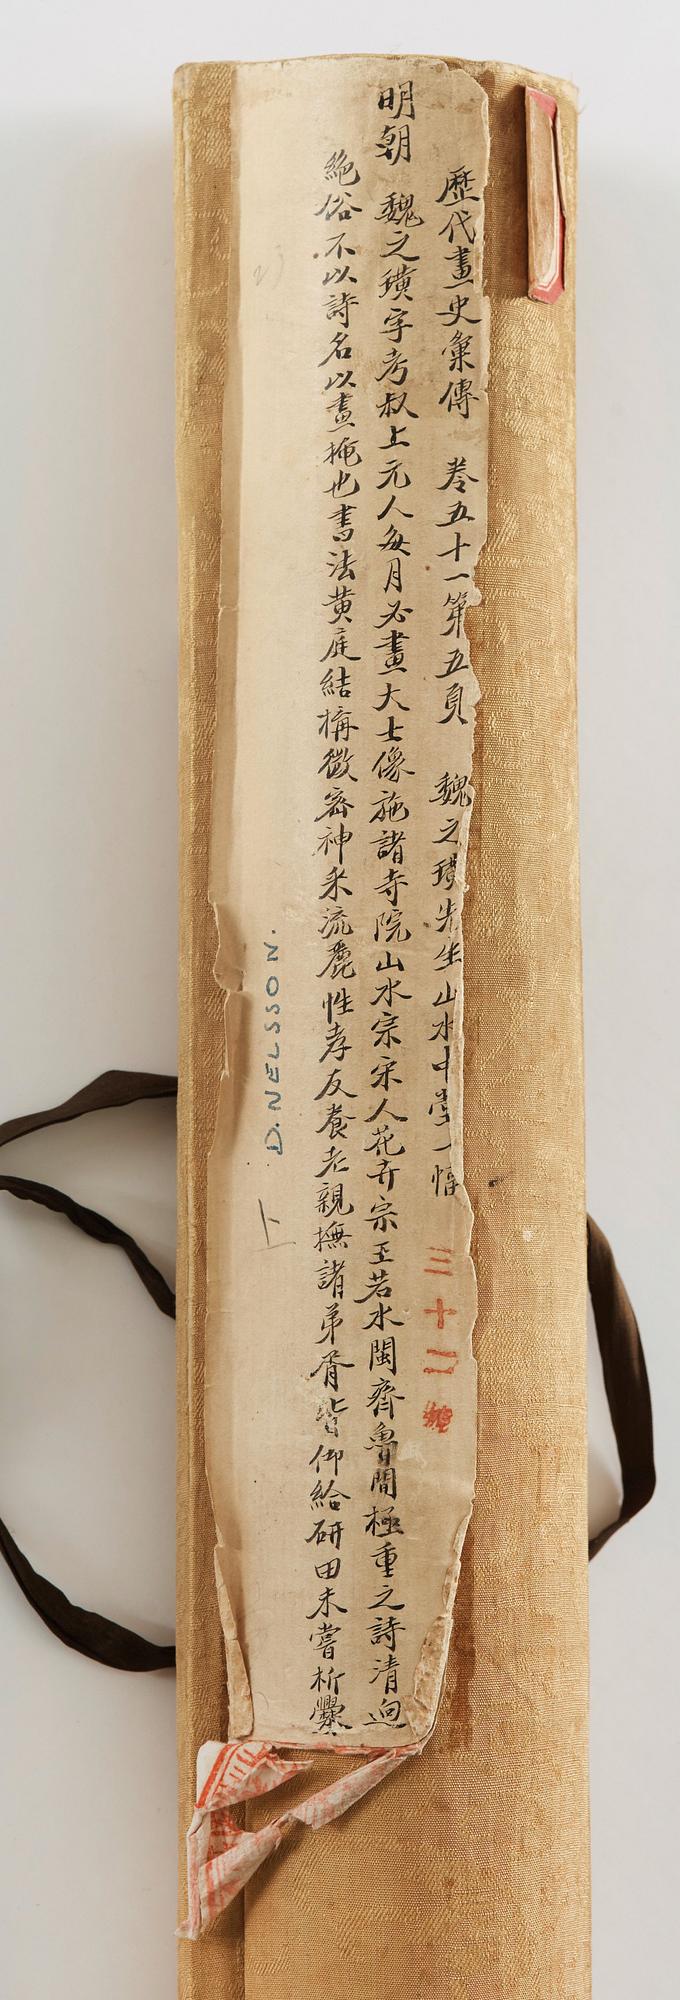 歷代畫史彙傳　卷五十一第五頁　魏之璜先生山水中堂一幅　三十二號
明朝　魏之璜字考叔上元人每月必畫大士像施諸寺院山水宗宋人花卉宗王若水閩齊魯間極重之詩清迥
絕俗不以詩名以畫掩也書法黃庭結構微密神采流麗性孝友養老親撫諸弟胥皆仰給研田未嘗析爨
D. NELSSON.
上